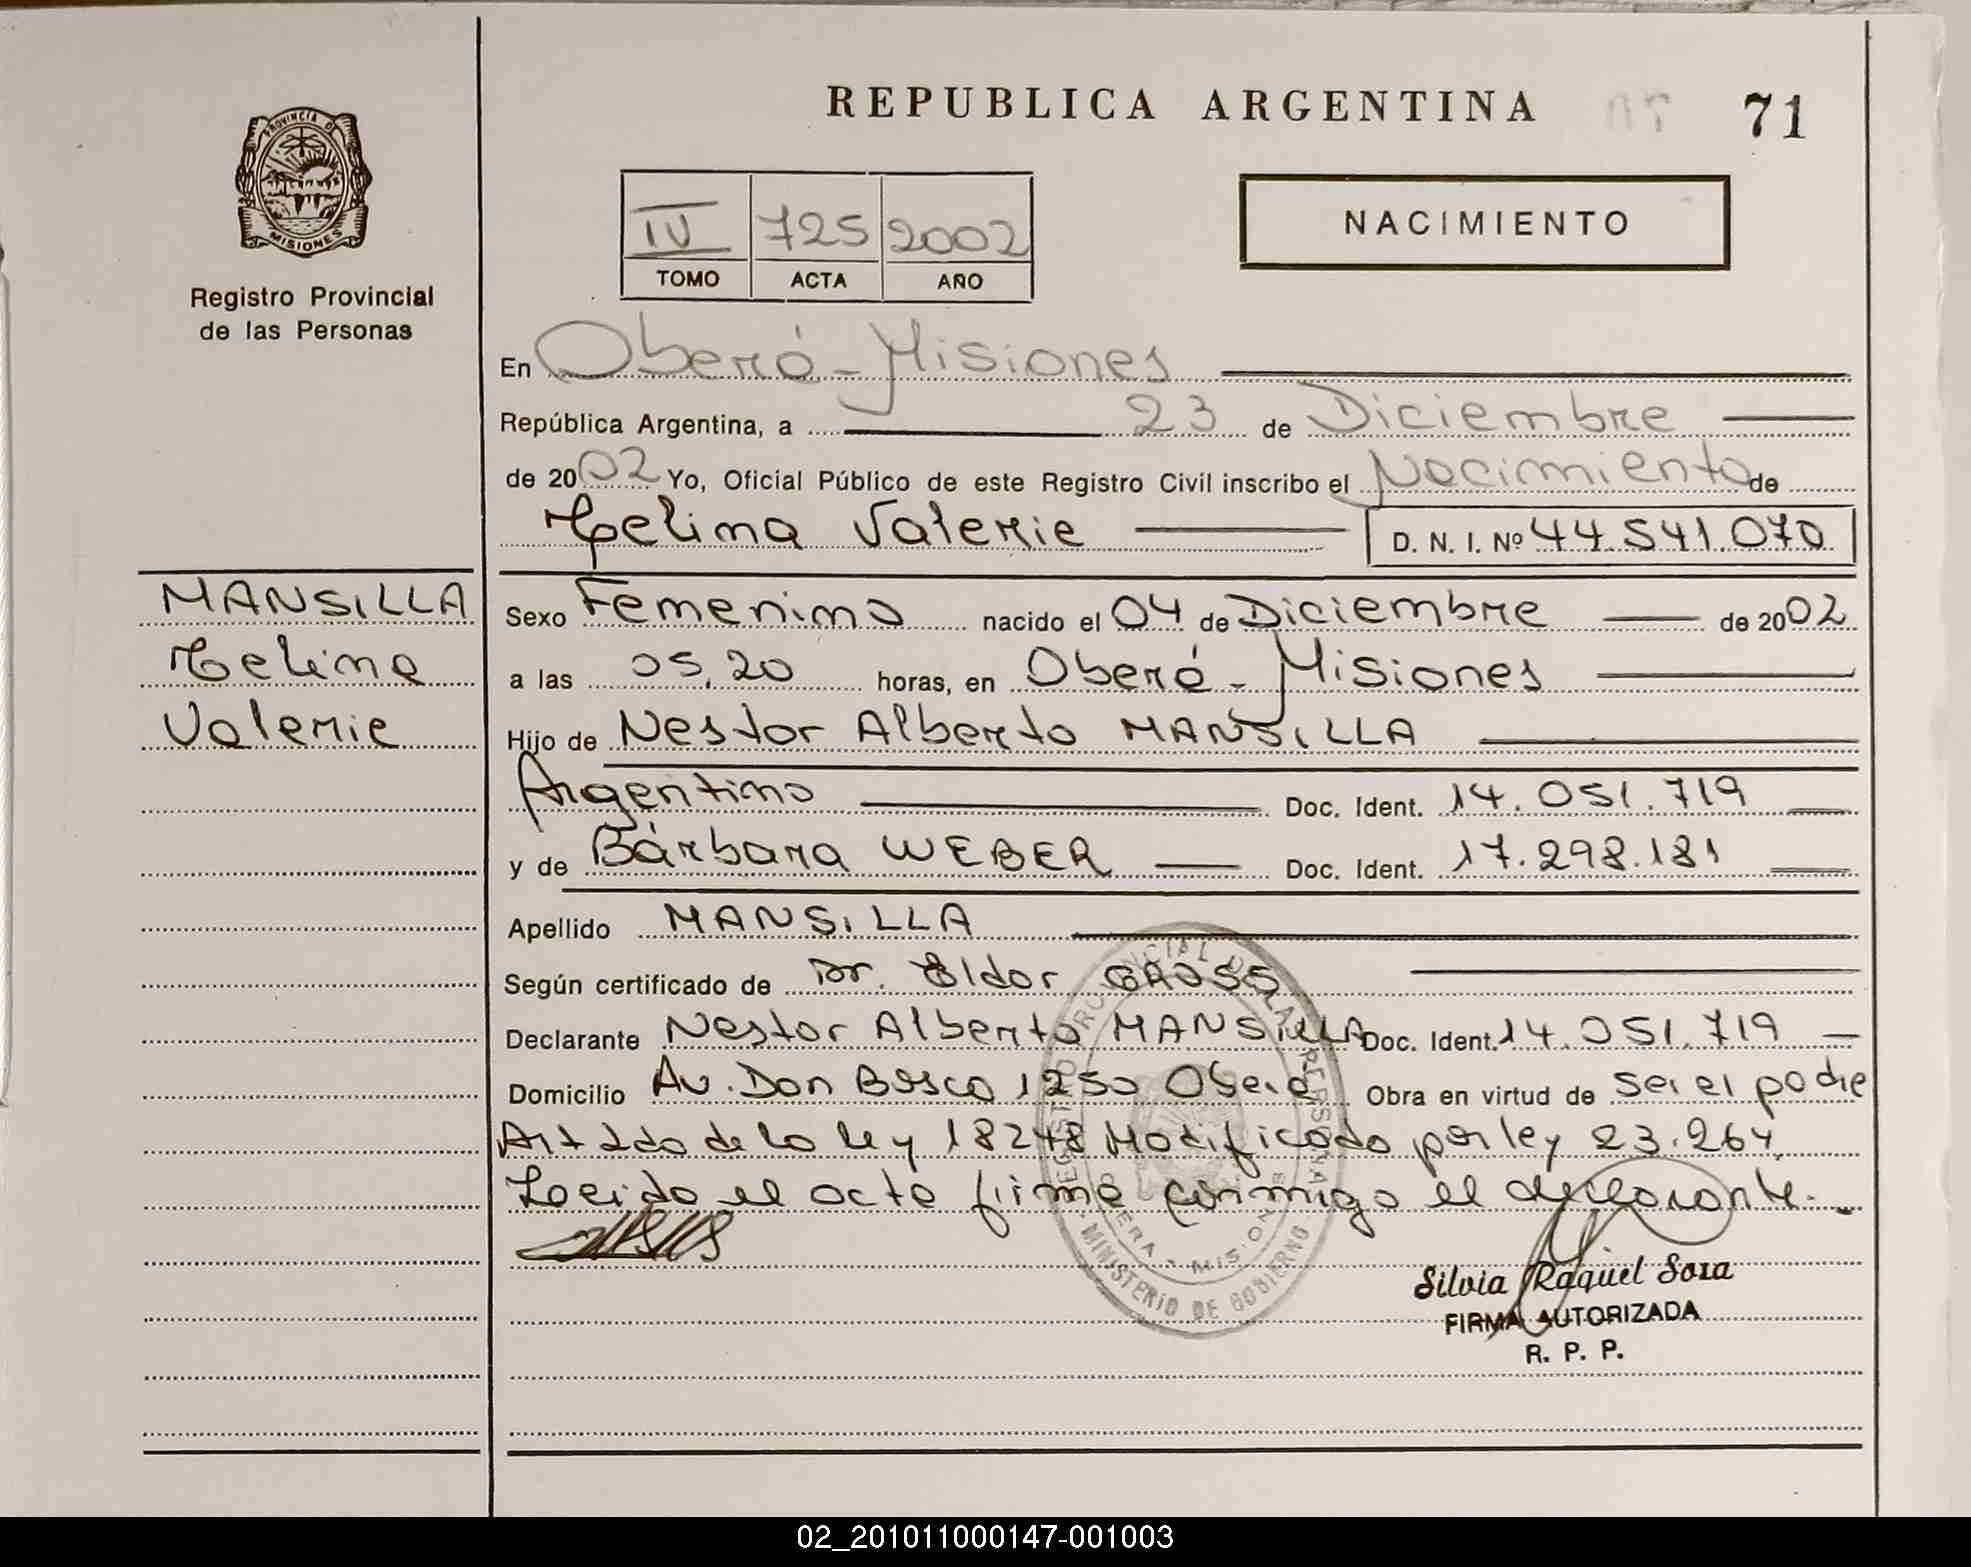 REPUBLICA ARGENTINA 71
PROVINCIA DE
MISIONES
Registro Provincial
de las Personas
IV 725 2002
TOMO ACTA AÑO
NACIMIENTO
En Oberá - Misiones
República Argentina, a 23 de Diciembre
de 2002 Yo, Oficial Público de este Registro Civil inscribo el Nacimiento de
Celina Valerie D. N. I. Nº 44.541.070
MANSILLA
Celina
Valerie
Sexo Femenino nacido el 04 de Diciembre de 2002
a las 05,20 horas, en Oberá - Misiones
Hijo de Nestor Alberto MANSILLA
Argentino Doc. Ident. 14.051.719
y de Bárbara WEBER Doc. Ident. 17.298.181
Apellido MANSILLA
Según certificado de Dr. Eldor GROSS
Declarante Nestor Alberto MANSILLA Doc. Ident. 14.051.719
Domicilio Av. Don Bosco 1250 Oberá Obra en virtud de ser el padre
Art 2do de la ley 18248 Modificado por ley 23.264,
Leido el acta firma conmigo el declarante.
MINISTERIO DE GOBIERNO
Silvia Raquel Sosa
FIRMA AUTORIZADA
R. P. P.
02_201011000147-001003